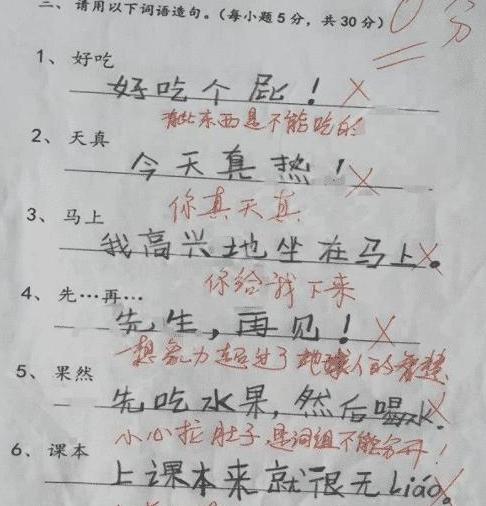 二、请用以下词语造句。(每小题5分，共30分)
0分
1、好吃
好吃个屁！
有些东西是不能吃的
2、天真
今天真热！
你真天真
3、马上
我高兴地坐在马上。
你给我下来
4、先…再…
先生，再见！
想象力超过了地球人的智慧
5、果然
先吃水果，然后喝水.
小心拉肚子 是词组不能分开！
6、课本
上课本来就很无Liáo。